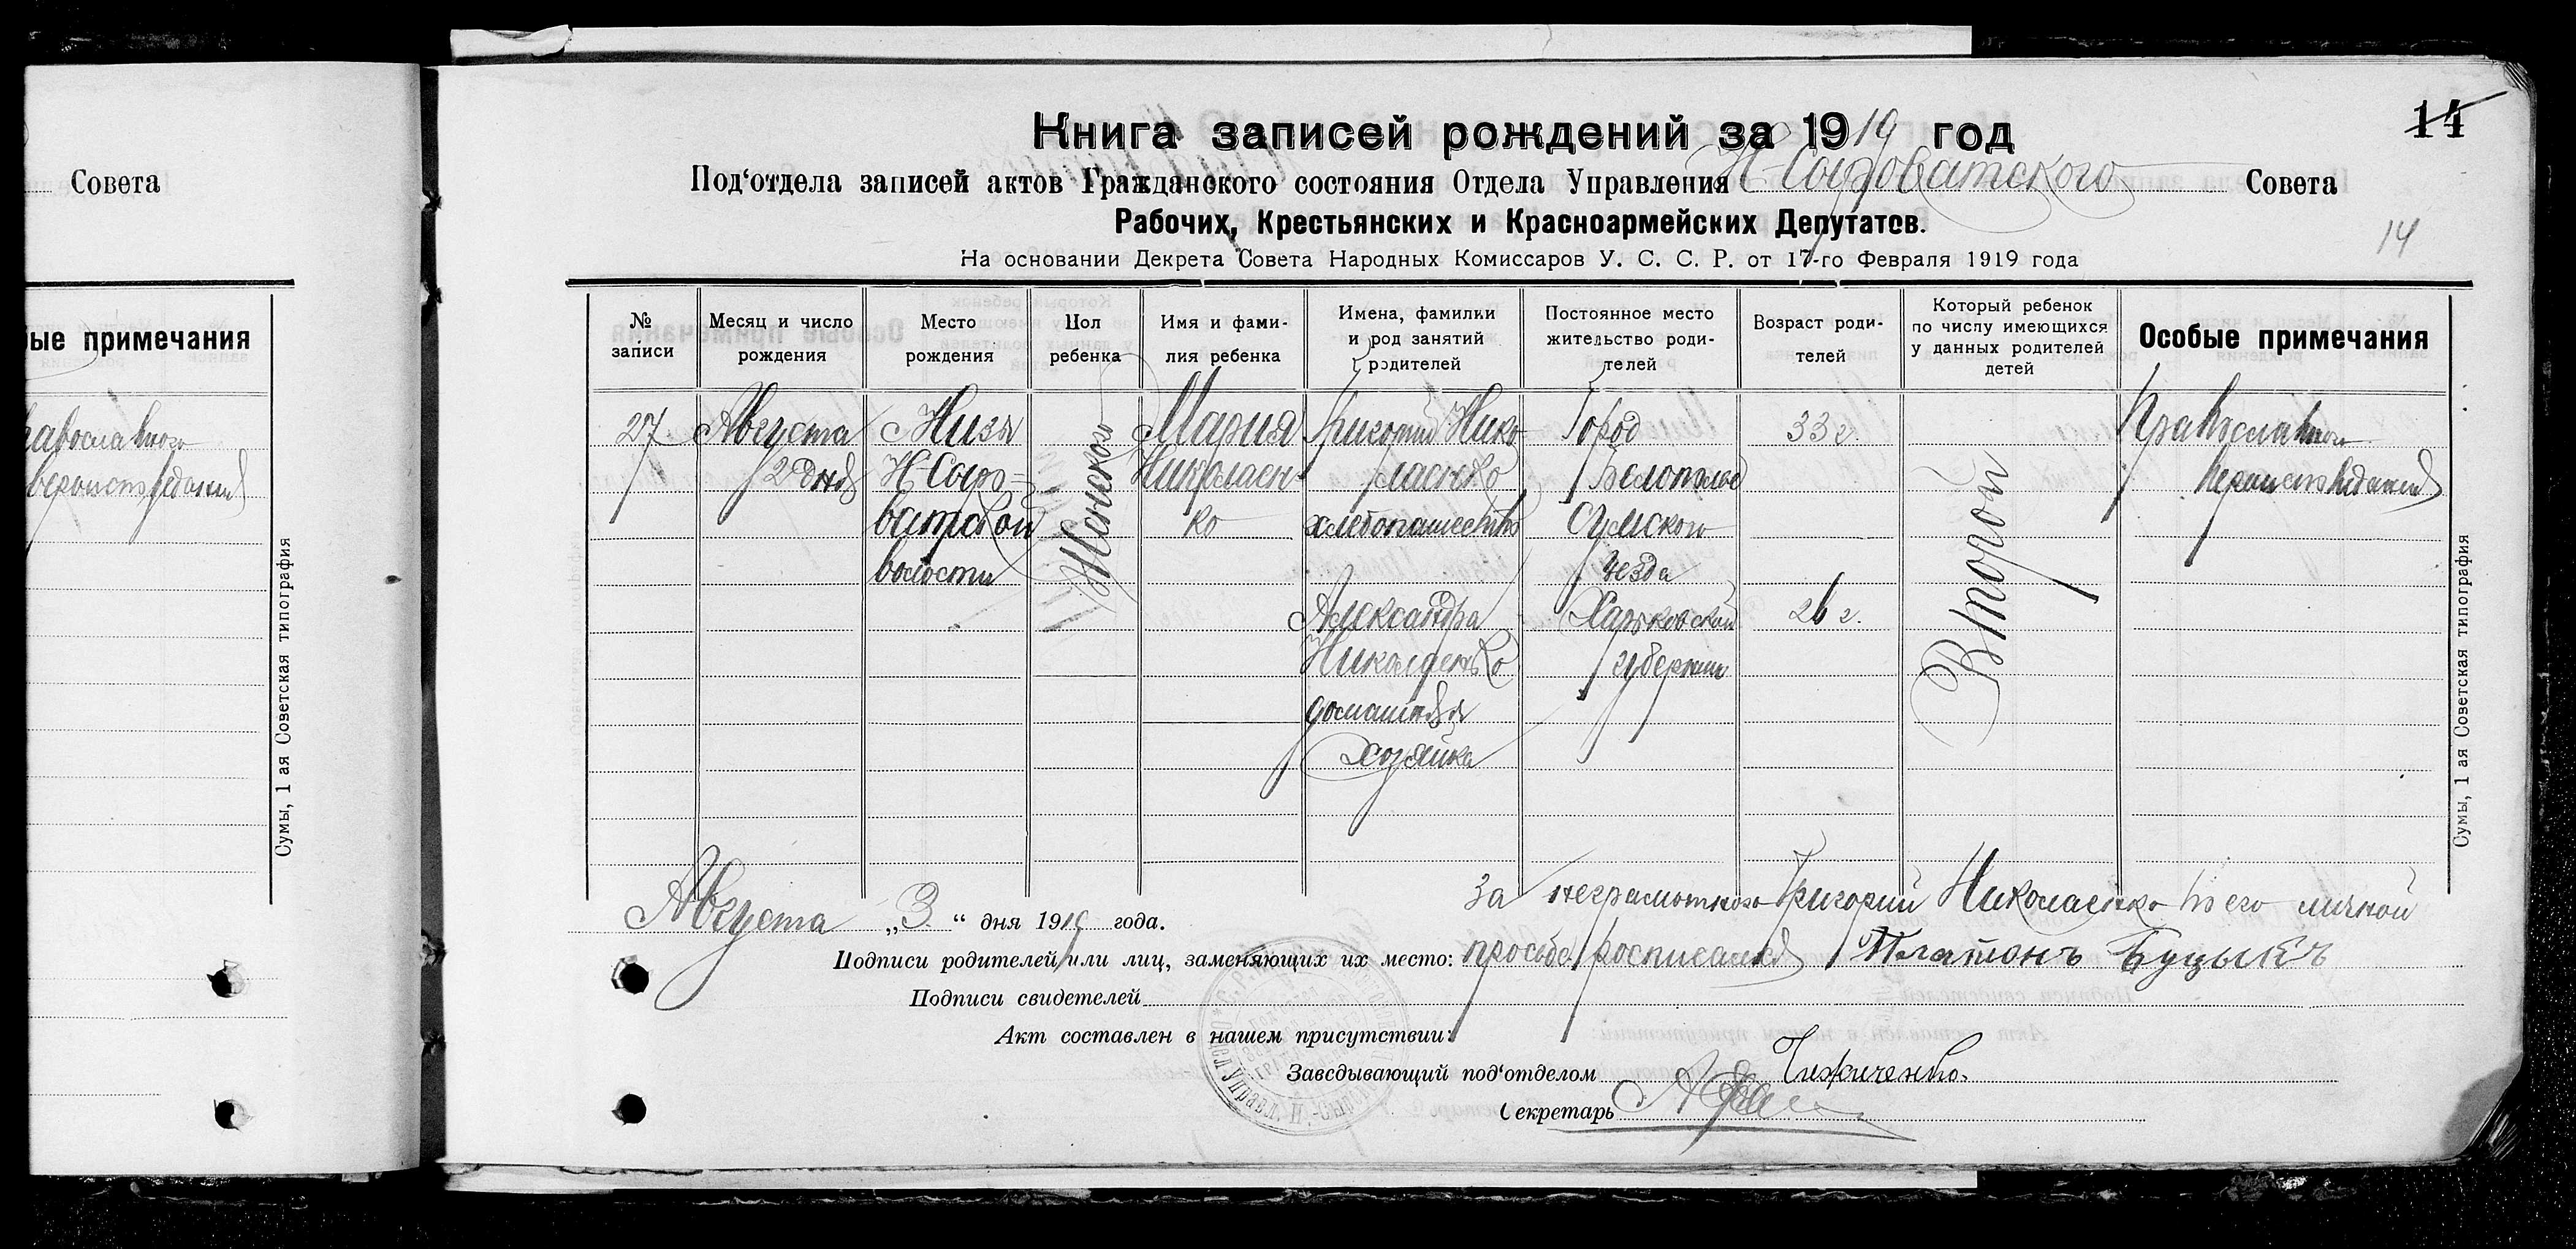 Совета
ые примечания
авославного
вероисповедания
Сумы, 1 ая Советская типография
14
Книга записей рождений за 1919 год
Под‘отдела записей актов Гражданского состояния Отдела Управления Н Сыроватского Совета
Рабочих, Крестьянских и Красноармейских Депутатов.
14
На основании Декрета Совета Народных Комиссаров У. С. С. Р. от 17-го Февраля 1919 года
№ записи
Месяц и число рождения
Место рождения
Пол ребенка
Имя и фами-
лия ребенка
Имена, фамилии
и род занятий
родителей
Постоянное место
жительство роди-
телей
Возраст роди-
телей
Который ребенок
по числу имеющихся
у данных родителей
детей
Особые примечания
27
Августа
2 дня
Низы
Н Сыро-
ватской
волости
Женского
Мария
Николаен-
ко
Григорий Нико
лаенко
хлебопашество
Александра
Николаенко
домашняя
хозяйка
Город
Белополье
Сумского
уезда
Харьковской
губернии
33 г.
26 г.
Второй
Православного
вероисповедания
Сумы, 1 ая Советская типография
Августа „3“ дня 1919 года.
За неграмотного Григорий Николаенко по его личной
Подписи родителей или лиц, заменяющих их место: просьбе росписался Платонъ Буцыкъ
Подписи свидетелей
Акт составлен в нашем присутствии:
Заведывающий под‘отделом
Секретарь